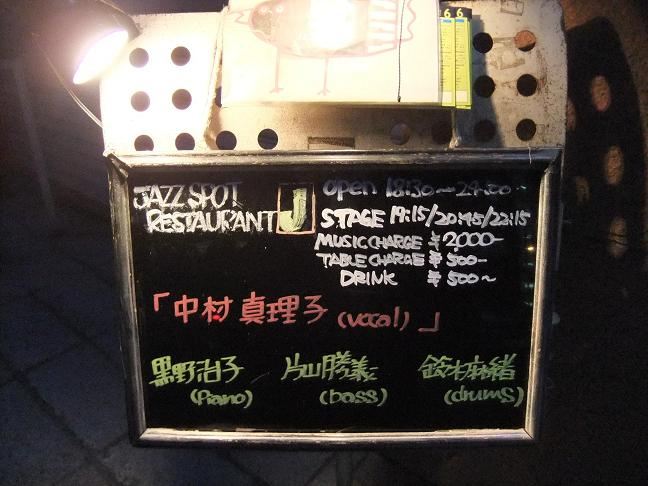 6 6
JAZZ SPOT
RESTAURANT J
open 18:30~24:00
STAGE 19:15/20:45/22:15
MUSIC CHARGE ¥2,000-
TABLE CHARGE ¥500-
DRINK ¥500~
「中村 真理子 (vocal)」
黒野治子 片山勝義 鈴木麻緒
(piano) (bass) (drums)